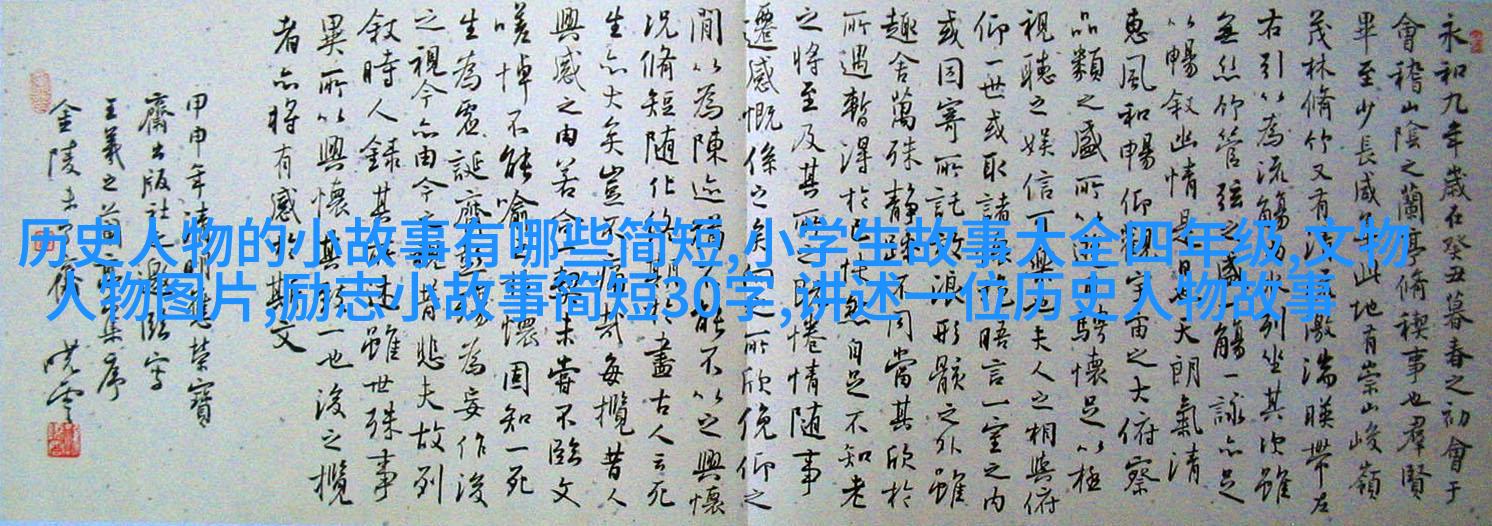 历史人物的小故事有哪些简短,小学生故事大全四年级,文物
人物图片,励志小故事简短30字,讲述一位历史人物故事
永和九年歲在癸丑暮春之初會于
會稽山陰之蘭亭脩稧事也羣賢
畢至少長咸集此地有崇山峻嶺
茂林脩竹又有清流激湍暎帶左
右引以為流觴曲水列坐其次雖
無絲竹管弦之盛一觴一詠亦足
以暢敘幽情是日也天朗氣清
惠風和暢仰觀宇宙之大俯察
品類之盛所以遊目騁懷足以極
視聽之娛信可樂也夫人之相與俯
仰一世或取諸懷抱晤言一室之內
或因寄所託放浪形骸之外雖
趣舍萬殊靜躁不同當其欣於
所遇暫得於己怏然自足不知老
之將至及其所之既惓情隨事
遷感慨係之矣向之所欣俛仰之
間以為陳迹猶不能不以之興懷
況脩短隨化終期於盡古人云死
生亦大矣豈不痛哉每攬昔人
興感之由若合一契未嘗不臨文
嗟悼不能喻之於懷固知一死
生為虛誕齊彭殤為妄作後
之視今亦由今之視昔悲夫故列
敘時人錄其所述雖世殊事
異所以興懷其致一也後之攬
者亦將有感於斯文
甲申年清明應榮寶
齋出版社之
王羲之蘭亭集序
金陵